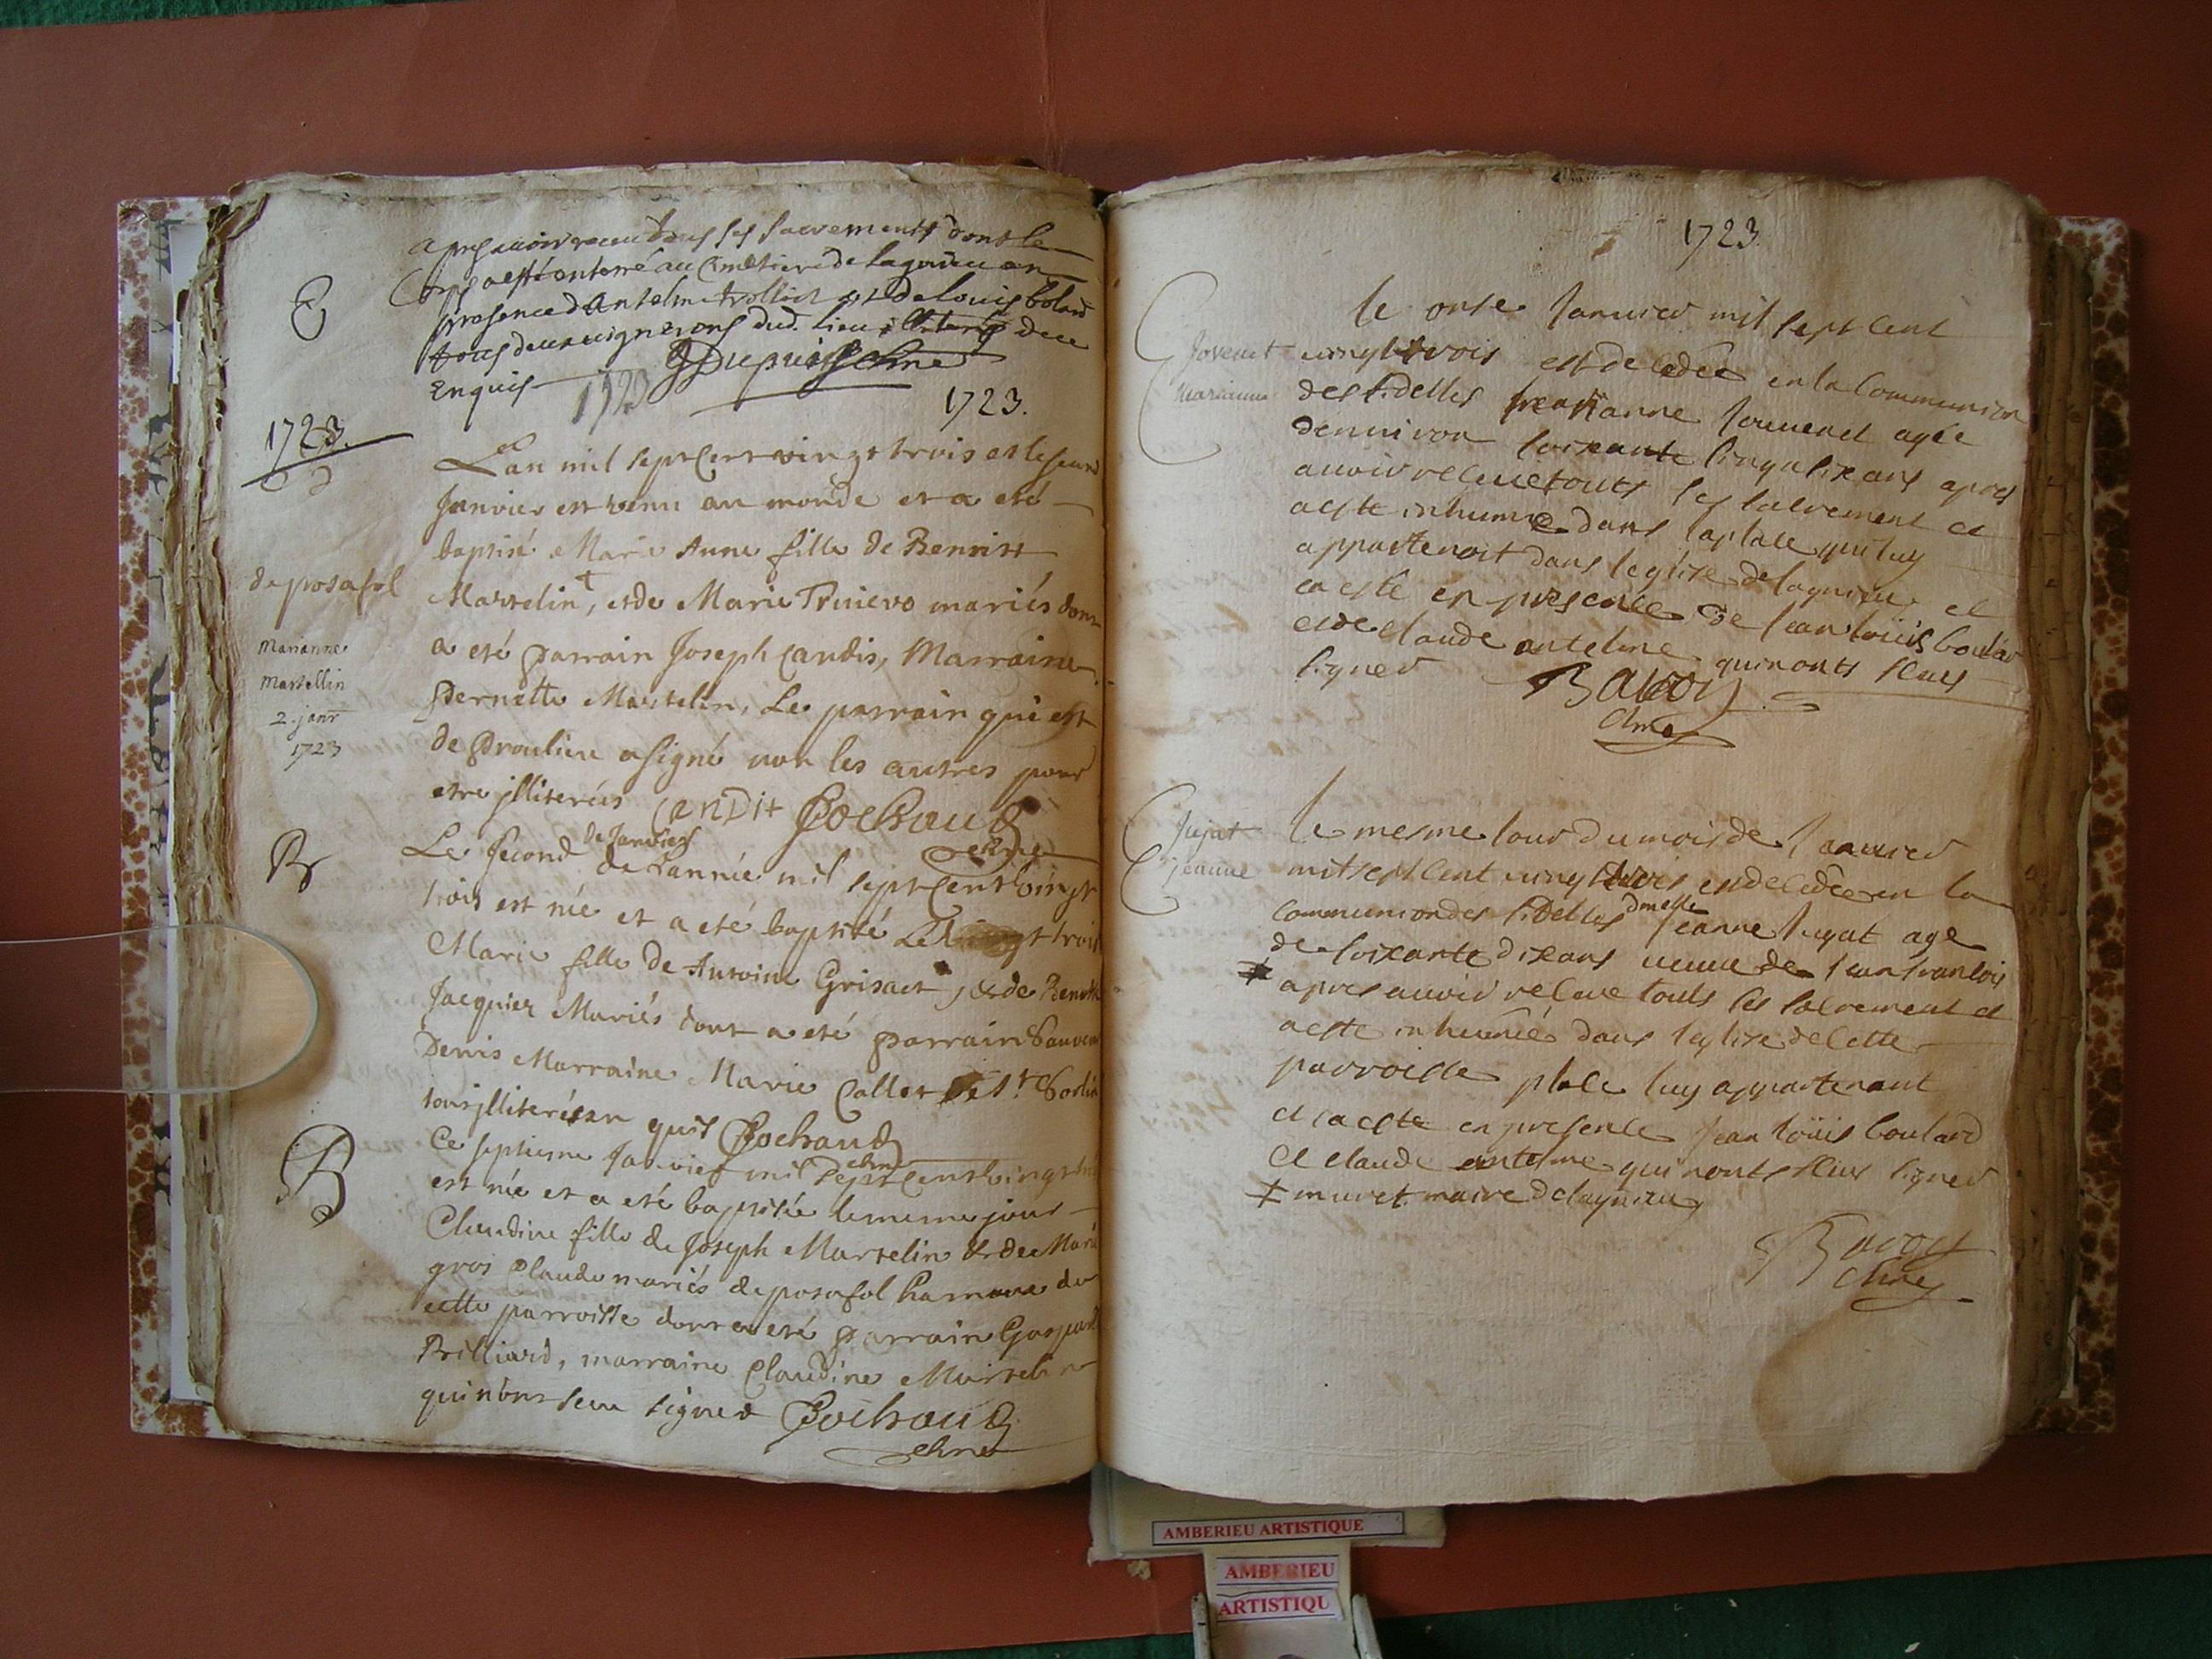 apres avoir receu tous ses sacrements dont le
Corps a esté enterré au Cimetiere de lagnieu en
presence d'Antelme trolliet et de louis bolard
tous deux vignerons dud. lieu illiterés de ce
Enquis
Dupuis
1723
1723.
1723.
L'an mil sept Cent vingt trois et le second
Janvier est venu au monde et a eté
baptisé Marie Anne fille de Benoist
de posafol
Martelin, et de Marie mariés dont
a eté parrain Joseph Candis, Marraine
Marianne
Martellin
2. janr
1723
Pernette Martelin, Le parrain qui est
de Proulieu a signé non les autres pour
etre jlliterés Candit Cochaud
B
Le second de Janvier
de L'année mil sept Cent vingt
trois est née et a eté baptisé Le trois
Marie fille de Antoine Grisact, & de
Jacquier Mariés dont a eté parrain
Denis Marraine Marie Collet de St. Sorlin
tous jlliterés en quis Cochaud
B
Ce septieme Janvier mil sept Cent vingt
est née et a eté baptisée le meme jour
Claudine fille de Joseph Martelin & de Marie
gros Claude mariés de posafol hameau de
cette parroisse dont a eté parrain Gaspard
Brilliard, marraine Claudine Martelin
qui n'ont sceu signer Cochaud
1723.
le onse Janvier mil sept Cent
Jovenet
Marianne
vingt trois est decedée en la Communion
des fidelles marianne Jouvenet agée
denuiron soixante cinq a six ans apres
auoir receue touts ses sacrement et
a este inhumée dans la place qui luy
appartenoit dans leglise de lagnieu et
ca este en presence de Jean loüis boulard
et de claude antelme qui nonts sceus
signer Bavoz
Jujat
Jeanne
le mesme Jour du mois de Januier
mil sept cent vingt trois est decedée en la
communion des fidelles dmelle Jeanne Jujat age
de soixante dix ans veuue de Jean francois
‡ apres auoir receue touts ses sacrement et
a este inhumée dans leglise de cette
parroisse place luy appartenant
et ca este en presence Jean loüis boulard
et claude antelme qui nonts sceus signer
‡ muret maire de lagnieu
Bavoz
AMBERIEU ARTISTIQUE
AMBERIEU
ARTISTIQU